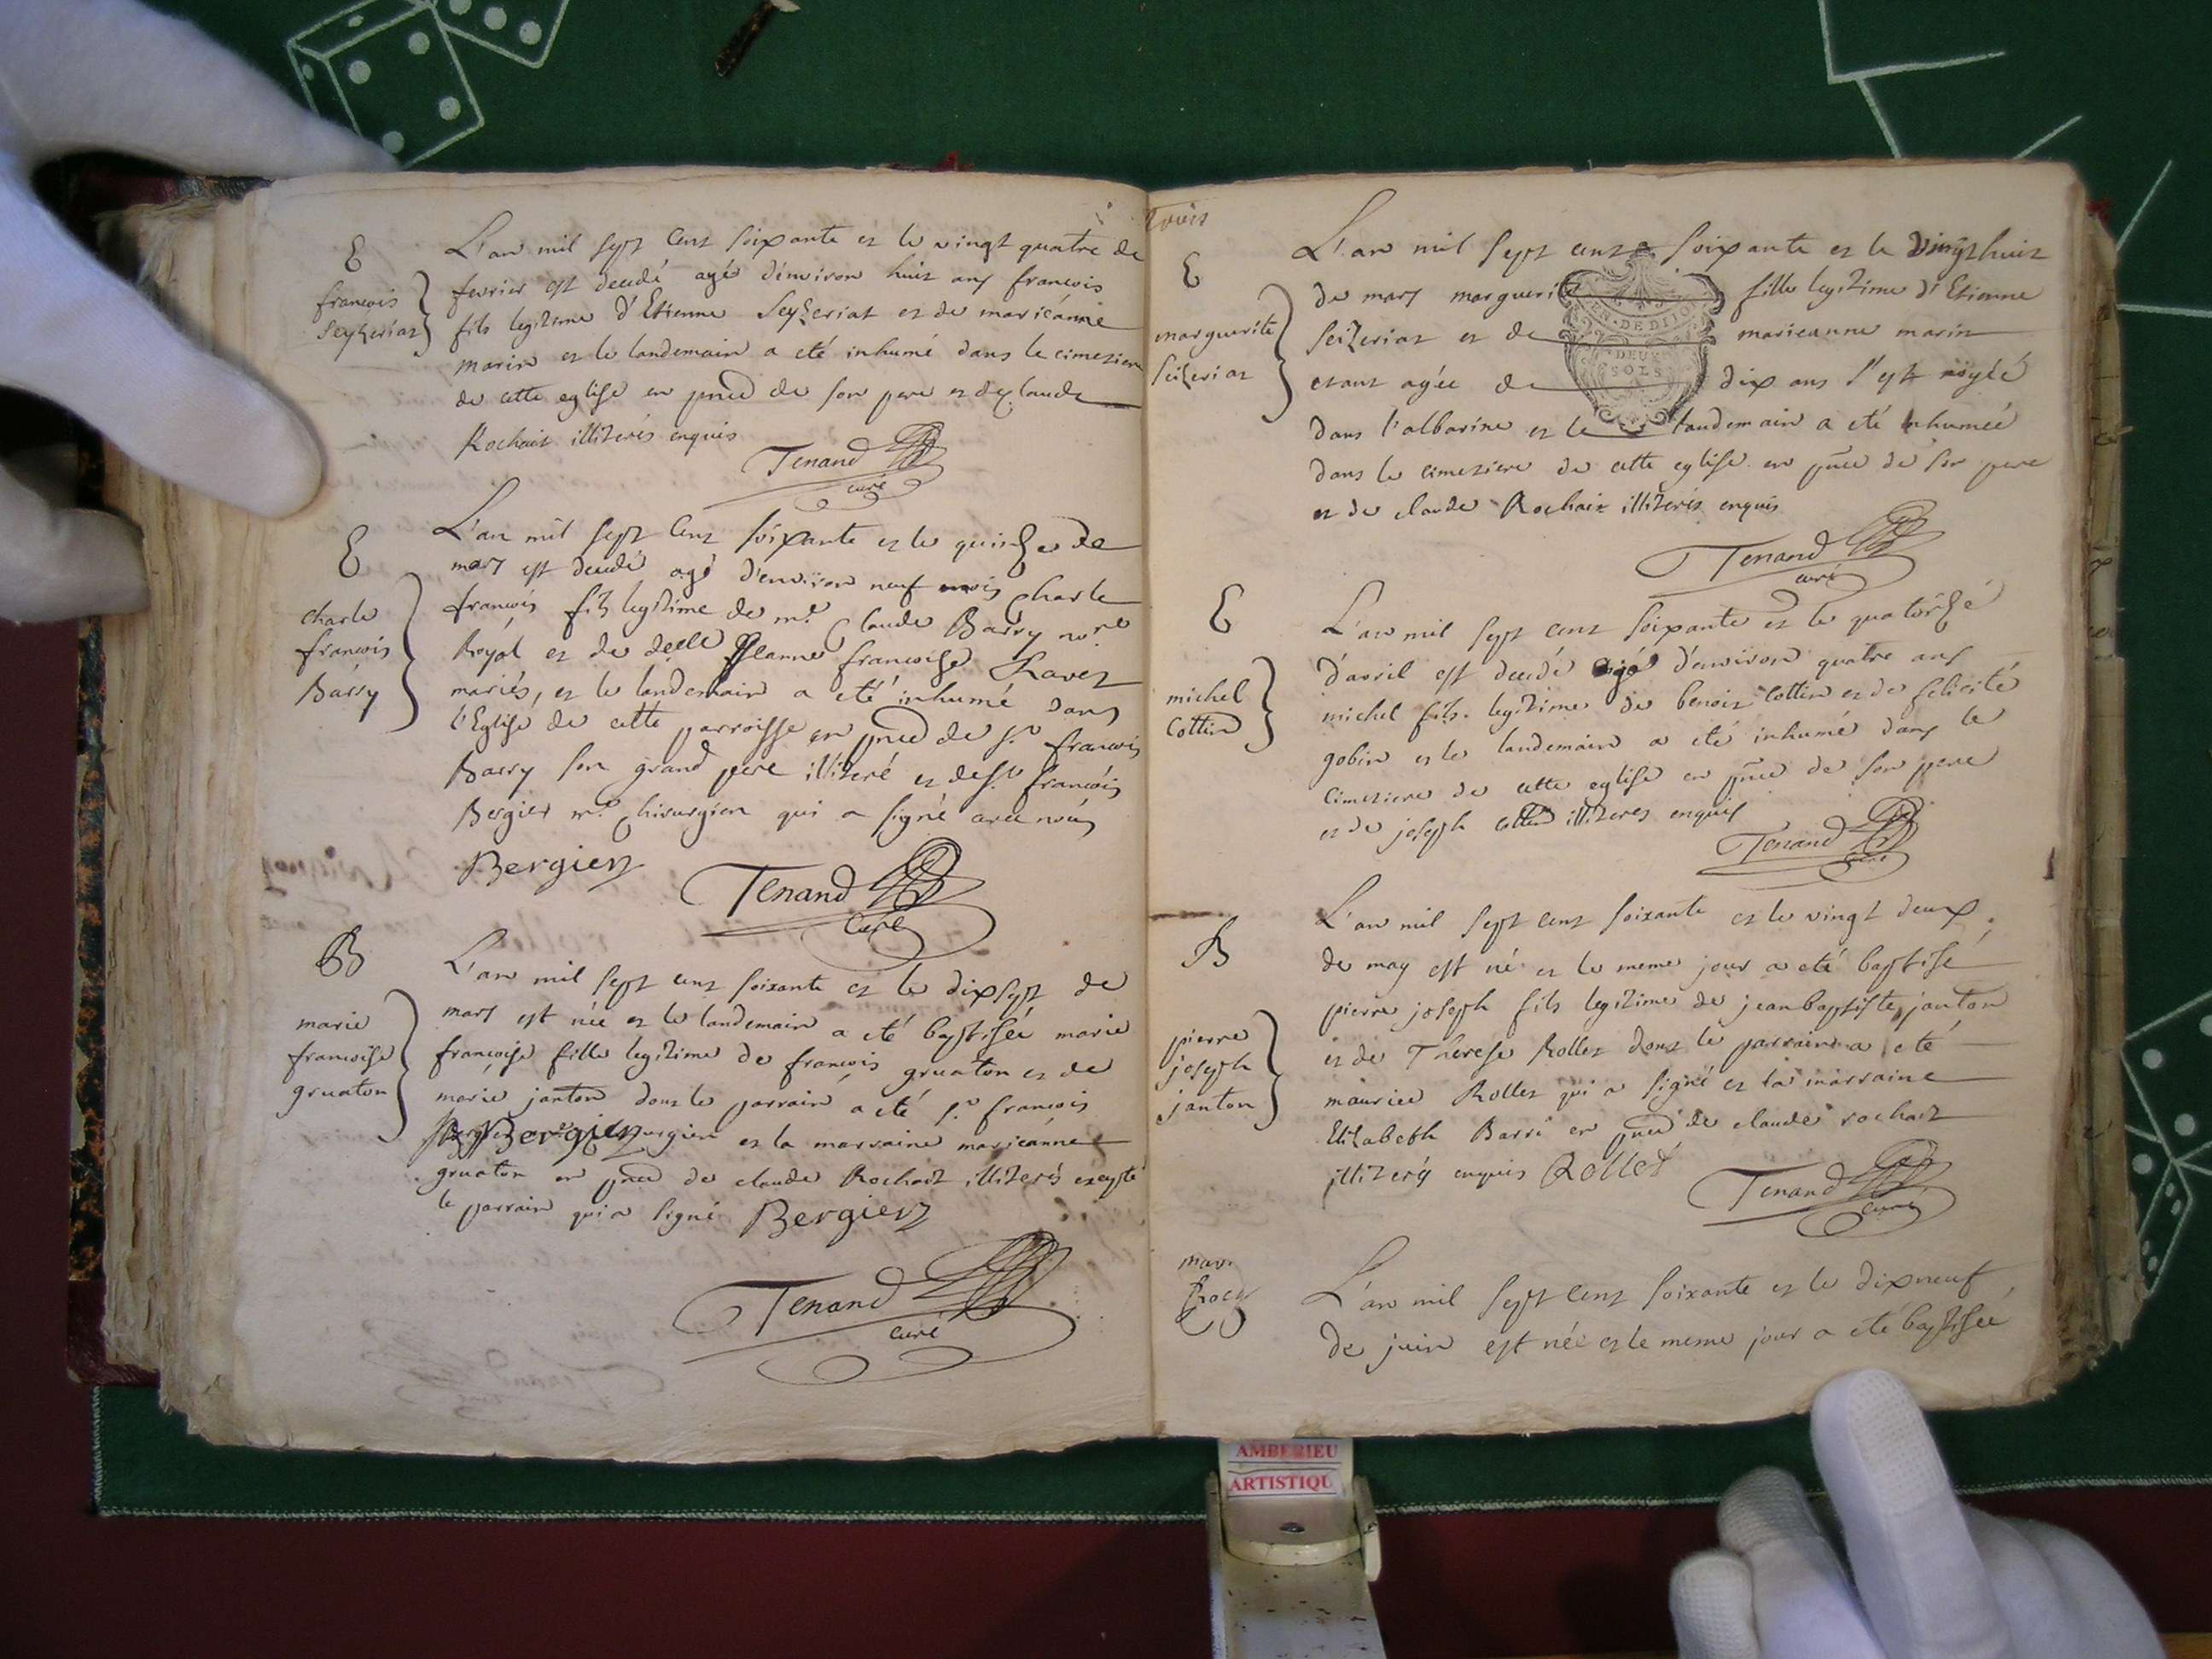 E
françois
Seyzeriat
L'an mil sept cent soixante et le vingt quatre de
fevrier est decedé agé d'environ huit ans françois
fils legitime d'Etienne Seyzeriat et de marieanne
marin et le landemain a eté inhumé dans le cimetiere
de cette eglise en pnce de son pere et de claude
Rochaix illiterés enquis
Tenand
curé
E
charle
françois
Barry
L'an mil sept cent soixante et le quinze de
mars est decedé agé d'environ neuf mois Charle
françois fils legitime de mr. Claude Barry nore
Royal et de delle Jeanne françoise Ravet
mariés, et le landemain a eté inhumé dans
l'Eglise de cette parroisse en pnce de sr. françois
Barry son grand pere illiteré et de sr. françois
Bergier mr. chirurgien qui a signé avec nous
Bergier
Tenand
Curé
B
marie
françoise
gruaton
L'an mil sept cent soixante et le dixsept de
mars est née et le landemain a eté baptisée marie
françoise fille legitime de françois gruaton et de
marie janton dont le parrain a eté sr. françois
Bergier chirurgien et la marraine marieanne
gruaton en pnce de claude Rochaix illiterés excepté
le parrain qui a signé Bergier
Tenand
curé
E
marguerite
Seizeriat
L'an mil sept cent soixante et le vingt huit
de mars marguerite fille legitime d'Etienne
Seizeriat et de marieanne marin
etant agée de dix ans s'est noyée
dans l'albarine et le landemain a eté inhumée
dans le cimetiere de cette eglise en pnce de son pere
et de claude Rochaix illiterés enquis
EN. DE DIJON
DEUX
SOLS
Tenand
curé
E
michel
Cottin
L'an mil sept cent soixante et le quatorze
d'avril est decedé agé d'environ quatre ans
michel fils legitime de benoit Cottin et de felicité
gobin et le landemain a eté inhumé dans le
cimetiere de cette eglise en pnce de son pere
et de joseph cottin illiteres enquis
Tenand
curé
B
pierre
joseph
janton
L'an mil sept cent soixante et le vingt deux
de may est né et le meme jour a eté baptisé
pierre joseph fils legitime de jean baptiste janton
et de Therese Rollet dont le parrain a eté
maurice Rollet qui a signé et la marraine
Elizabeth Barri en pnce de claude rochaix
illiterés enquis Rollet
Tenand
curé
L'an mil sept cent soixante et le dixneuf
de juin est née et le meme jour a eté baptisée
AMBERIEU
ARTISTIQU